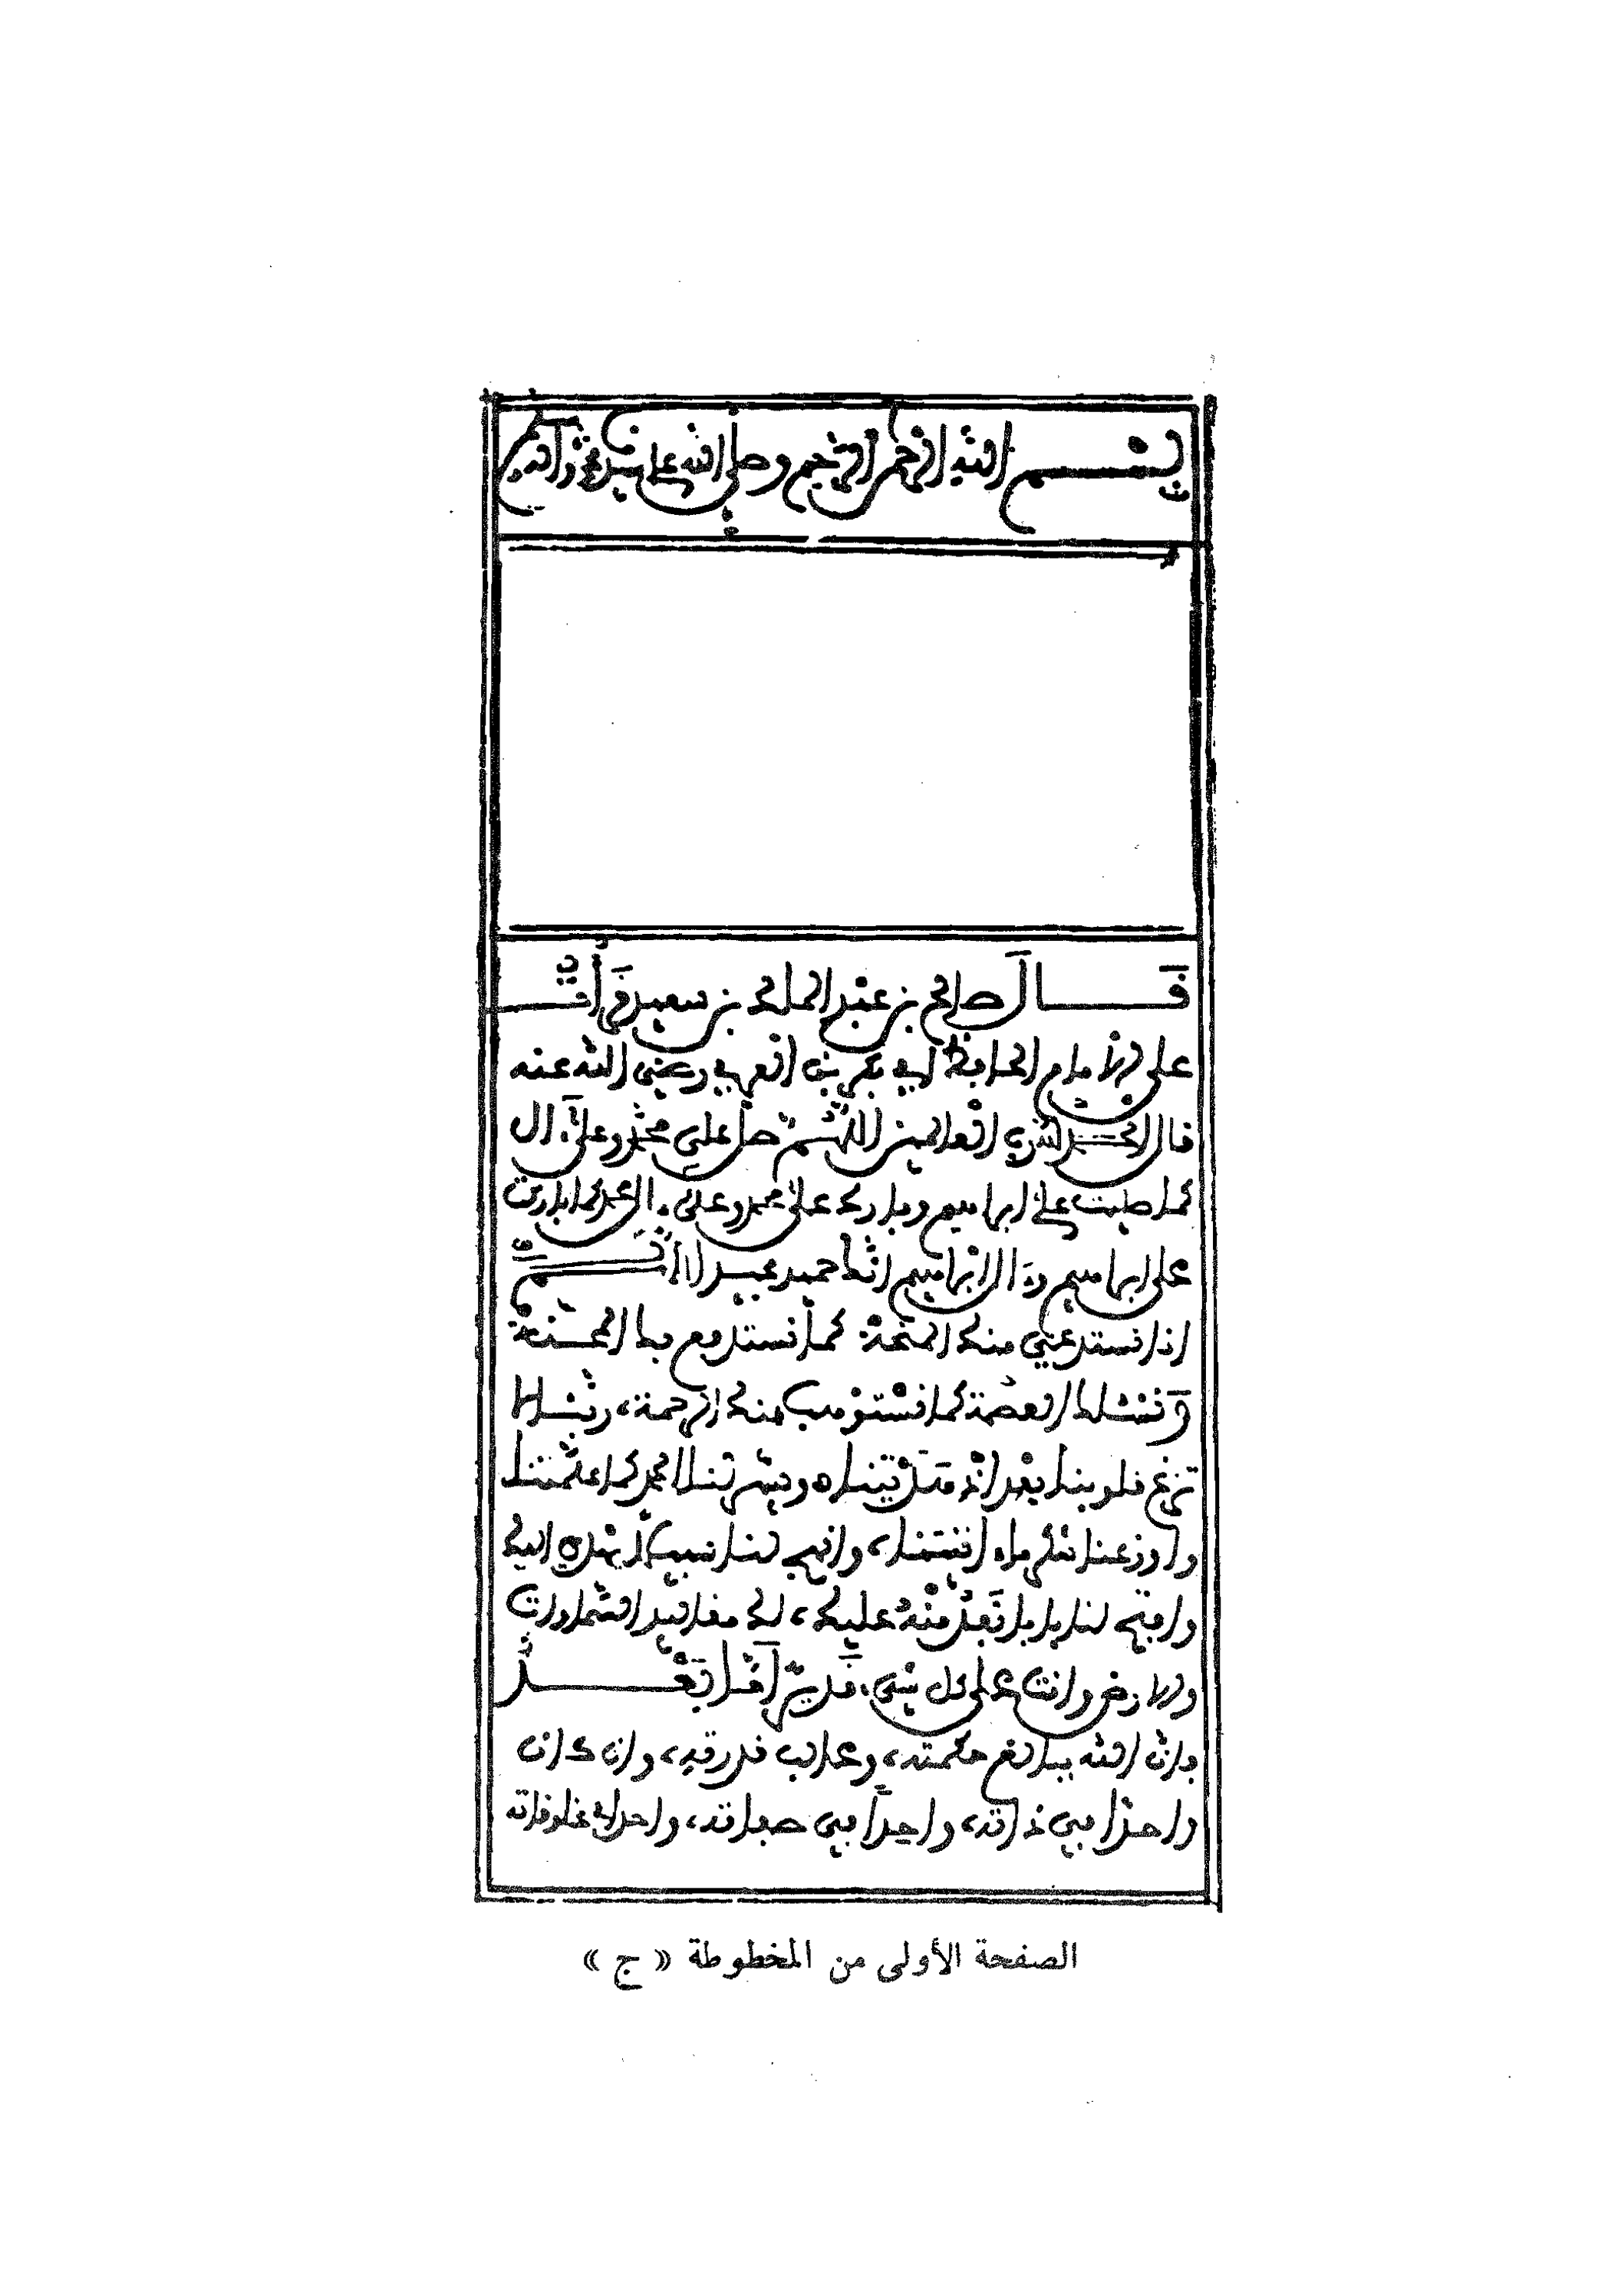 بسم الله الرحمن الرحيم وصلى الله على سيدنا محمد وآله
قال صالح بن عبد الملك بن سعيد قرأت
على الامام الحافظ ابي بكر بن العربي رضي الله عنه
قال الحمد لله رب العالمين اللهم صل على محمد وعلى آل
كما صليت على ابراهيم وبارك على محمد وعلى ءال محمد كما باركت
على ابراهيم وءال ابراهيم انك حميد مجيد اللهم
انا نستدعي منك المنحة كما نستدفع بك المحنة
ونسئلك العصمة كما نستوهب منك الرحمة، ربنا لا
تزغ قلوبنا بعد اذ هديتنا ويسر لنا العمل كما علمتنا
واوزعنا شكر ما ءاتيتنا، وانهج لنا سبيلا يهدي اليك
وافتح لنا بابا نفد منه عليك، لك مقاليد السماوات
والارض وانت على كل شيء قدير أما بعد
فان الله ببالغ حكمته، وغالب قدرته، وان كان
واحدا في ذاته، واحدا في صفاته، واحدا في مخلوقاته
الصفحة الأولى من المخطوطة « ج »